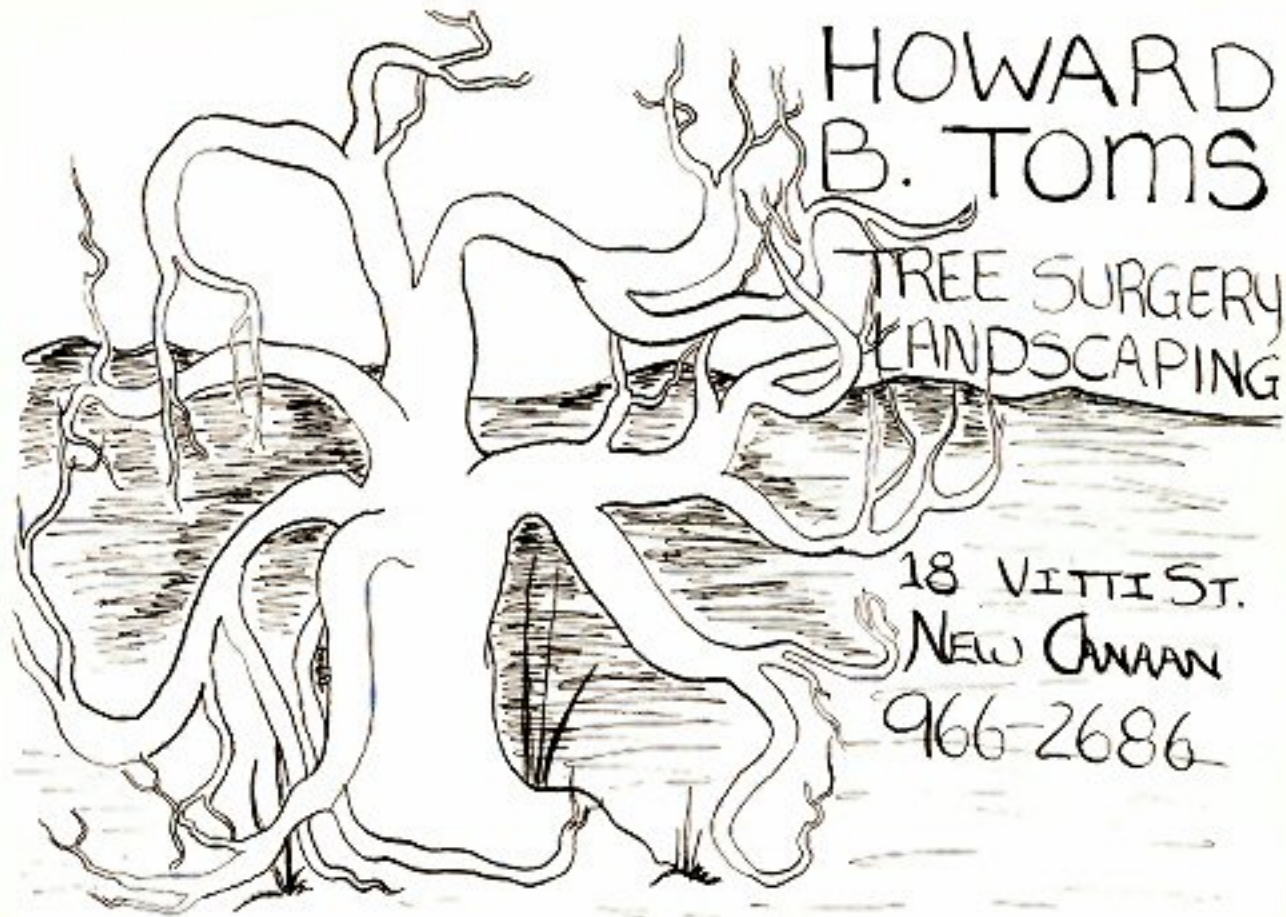 HOWARD
B. TOMS
TREE SURGERY
LANDSCAPING
18 VITTI ST.
NEW CANAAN
966-2686